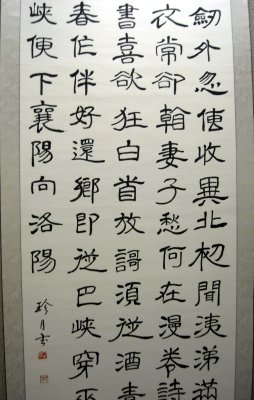 劒外忽傳收冀北初聞洟涕滿
衣常卻翰妻子愁何在漫卷詩
書喜欲狂白首放謌須從酒青
春作伴好還鄉即從巴峽穿巫
峽便下襄陽向洛陽
珍月書